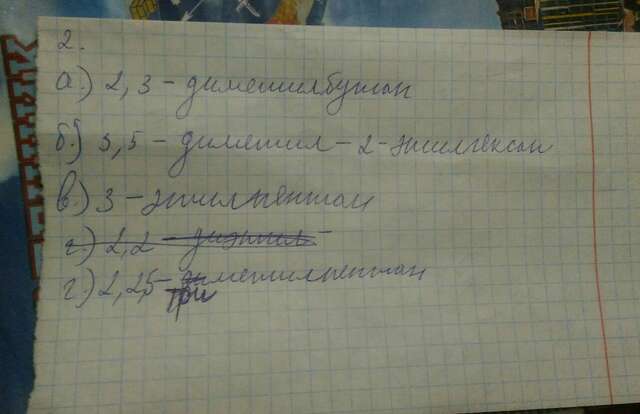 2.
а.) 2,3 - диметилбутан
б.) 3,5 - диметил - 2 - этилгексан
в.) 3 - этилпентан
г.) 2,2 - диэтил -
г.) 2,2,5 - триметилпентан